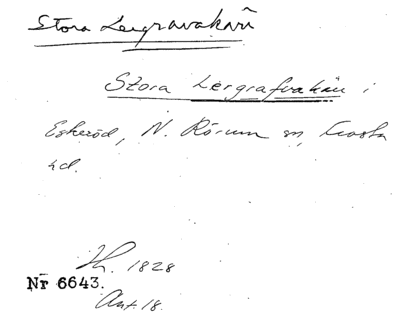 Stora Lergravakärr
Stora Lergrafvakärr i
Eskeröd, N. Rörum sn, Frosta
hd.
Th. 1828
Nr 6643.
Ant. 18.